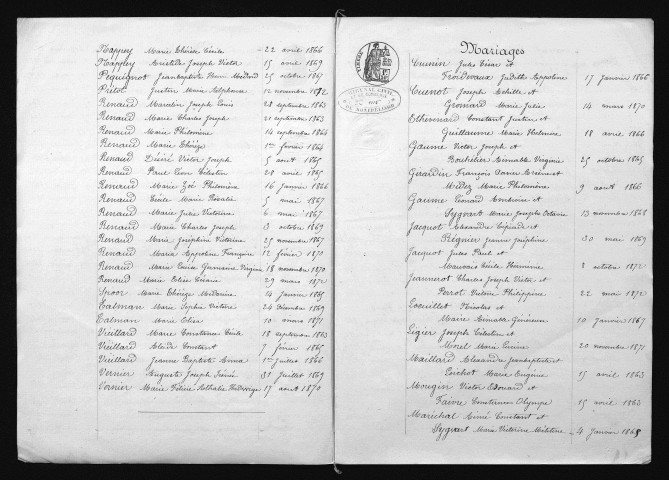 Mappey Marie Thérèse Cécile 22 avril 1866
Mappey Aristide Joseph Victor 15 avril 1869
Pequignot Jean Baptiste Henri 25 octobre 1867
Pillot Justine Marie Adelphonse 12 novembre 1872
Renaud Marcelin Joseph Louis 28 septembre 1863
Renaud Marie Charles Joseph 21 septembre 1863
Renaud Marie Philomène 14 septembre 1864
Renaud Marie Thérèse 1er février 1864
Renaud Désiré Victor Joseph 5 août 1865
Renaud Paul Léon Célestin 28 avril 1865
Renaud Marie Zoé Philomène 16 janvier 1866
Renaud Cécile Marie Rosalie 5 mai 1867
Renaud Marie Julie Victorine 6 mai 1867
Renaud Marie Charles Joseph 3 octobre 1869
Renaud Marie Joséphine Victorine 25 novembre 1867
Renaud Marie Appoline Françoise 12 février 1870
Renaud Marie Louise Germaine Virginie 18 novembre 1870
Renaud Marie Elise 29 mars 1872
Spoor Marie Thérèse 14 janvier 1865
Talman Marie Sophie Victorine 24 décembre 1869
Talman Marie Elise 10 mars 1871
Vieillard Marie Constance Cécile 18 septembre 1863
Vieillard Claude Constant 7 février 1865
Vieillard Jeanne Baptiste Anna 1er juillet 1866
Vernier Auguste Joseph 31 juillet 1869
Vernier Marie Féline Nathalie 17 août 1870
TIMBRE
TRIBUNAL CIVIL
DE MONTBÉLIARD
Mariages
Cuenin Jules César et
Froidevaux Judith Appoline 17 janvier 1866
Cuenot Joseph Achille et
Gromard Marie Julie 14 mars 1870
Ethevenard Constant Justin et
Guillaume Marie 18 avril 1866
Gaume Victor Joseph et
Bouhélier Aimable Virginie 25 octobre 1865
Girardin François Xavier et
Midez Marie Philomène 9 août 1866
Gaume Léonard Ambroise et
Sygwart Marie Josephe Octavie 13 novembre 1868
Jacquot Alexandre et
Régnier Jeanne Joséphine 30 mai 1869
Jacquot Jules Paul et
Mauvais Cécile 8 octobre 1872
Jeannerot Charles Joseph Victor et
Perrot Victoire Philippine 22 mai 1872
Loeuillet Nicolas et
Marie Aimable 10 janvier 1867
Ligier Joseph Célestin et
Morel Marie 20 novembre 1871
Maillard Alexandre Jean Baptiste et
Marie Eugénie 15 avril 1863
Mougin Victor Edouard et
Faivre Constance Olympe 15 avril 1863
Maréchal Aimé Constant et
Sygwart Marie Victorine 4 janvier 1865